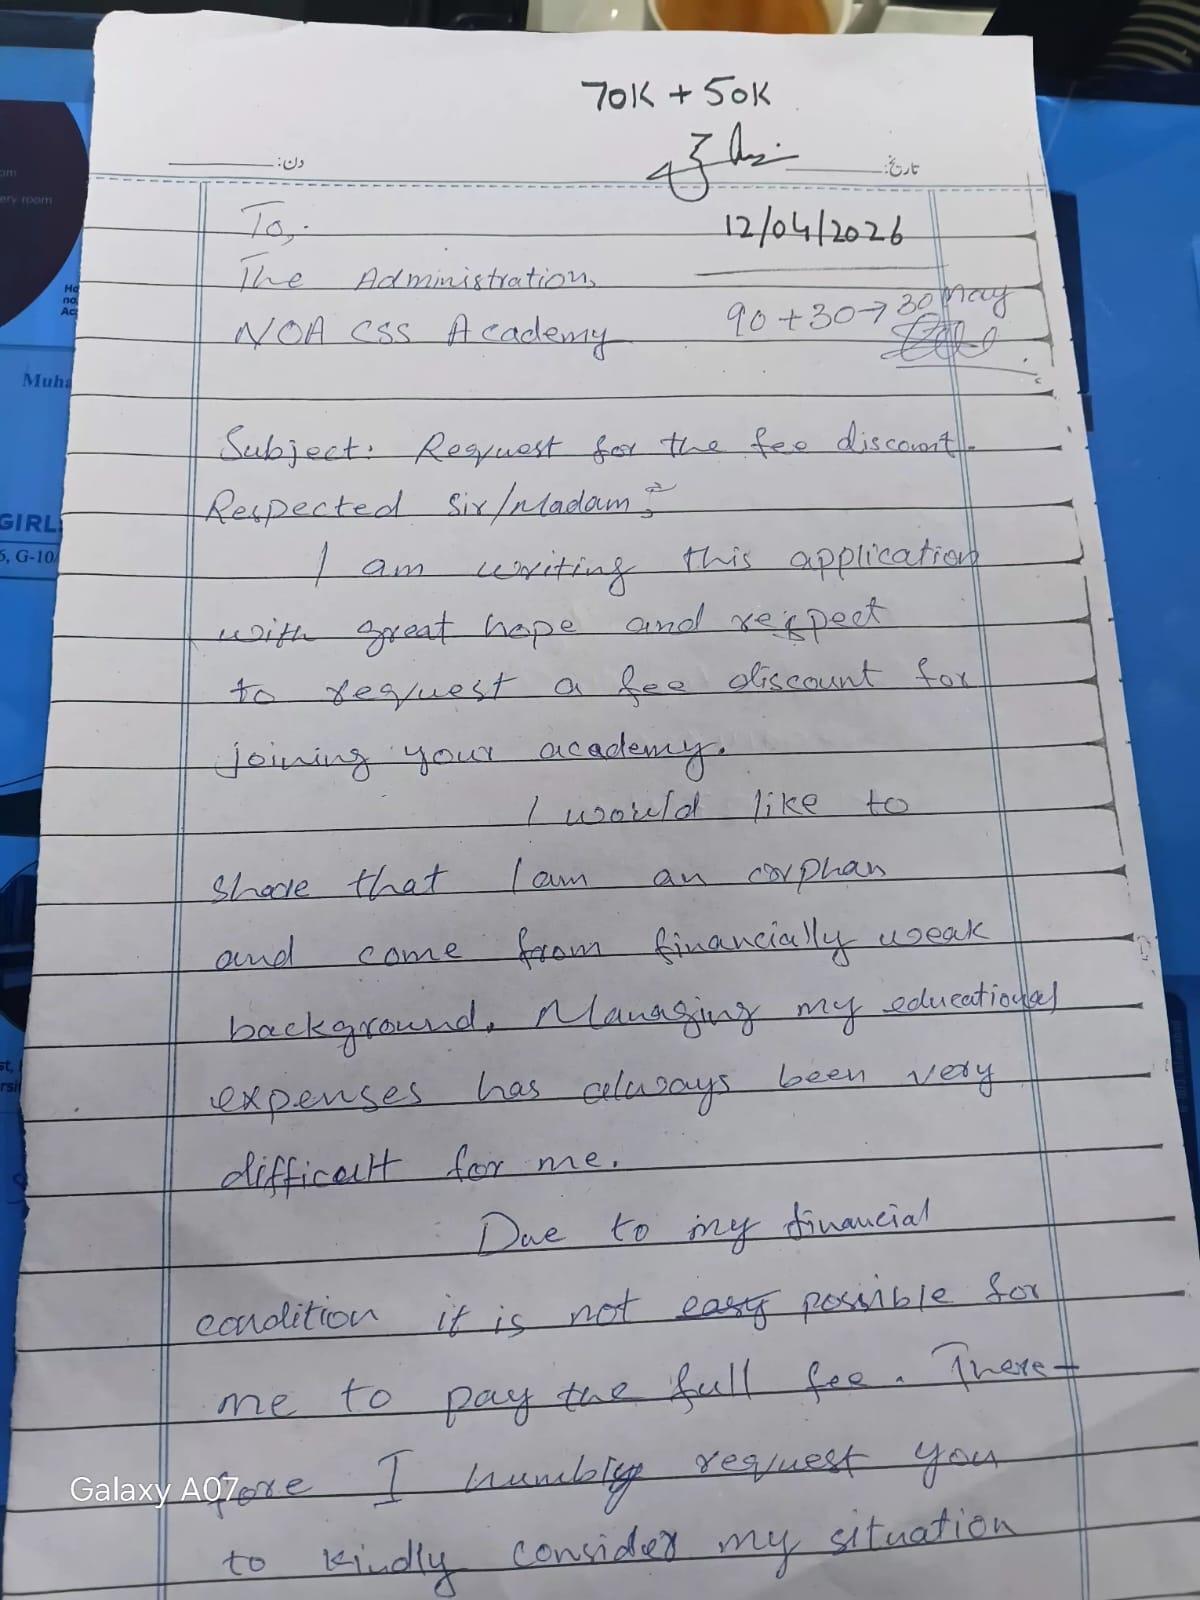 70K + 50K
دن:
تاریخ:
To,
12/04/2026
The Administration,
NOA CSS Academy
90 + 30 → 30 May
Subject: Request for the fee discount.
Respected Sir/Madam;
I am writing this application
with great hope and respect
to request a fee discount for
joining your academy.
I would like to
share that I am an orphan
and come from financially weak
background. Managing my educational
expenses has always been very
difficult for me.
Due to my financial
condition it is not easy possible for
me to pay the full fee. There-
fore I humbly request you
to kindly consider my situation
Galaxy A07
ery room
Muha
GIRL
G-10